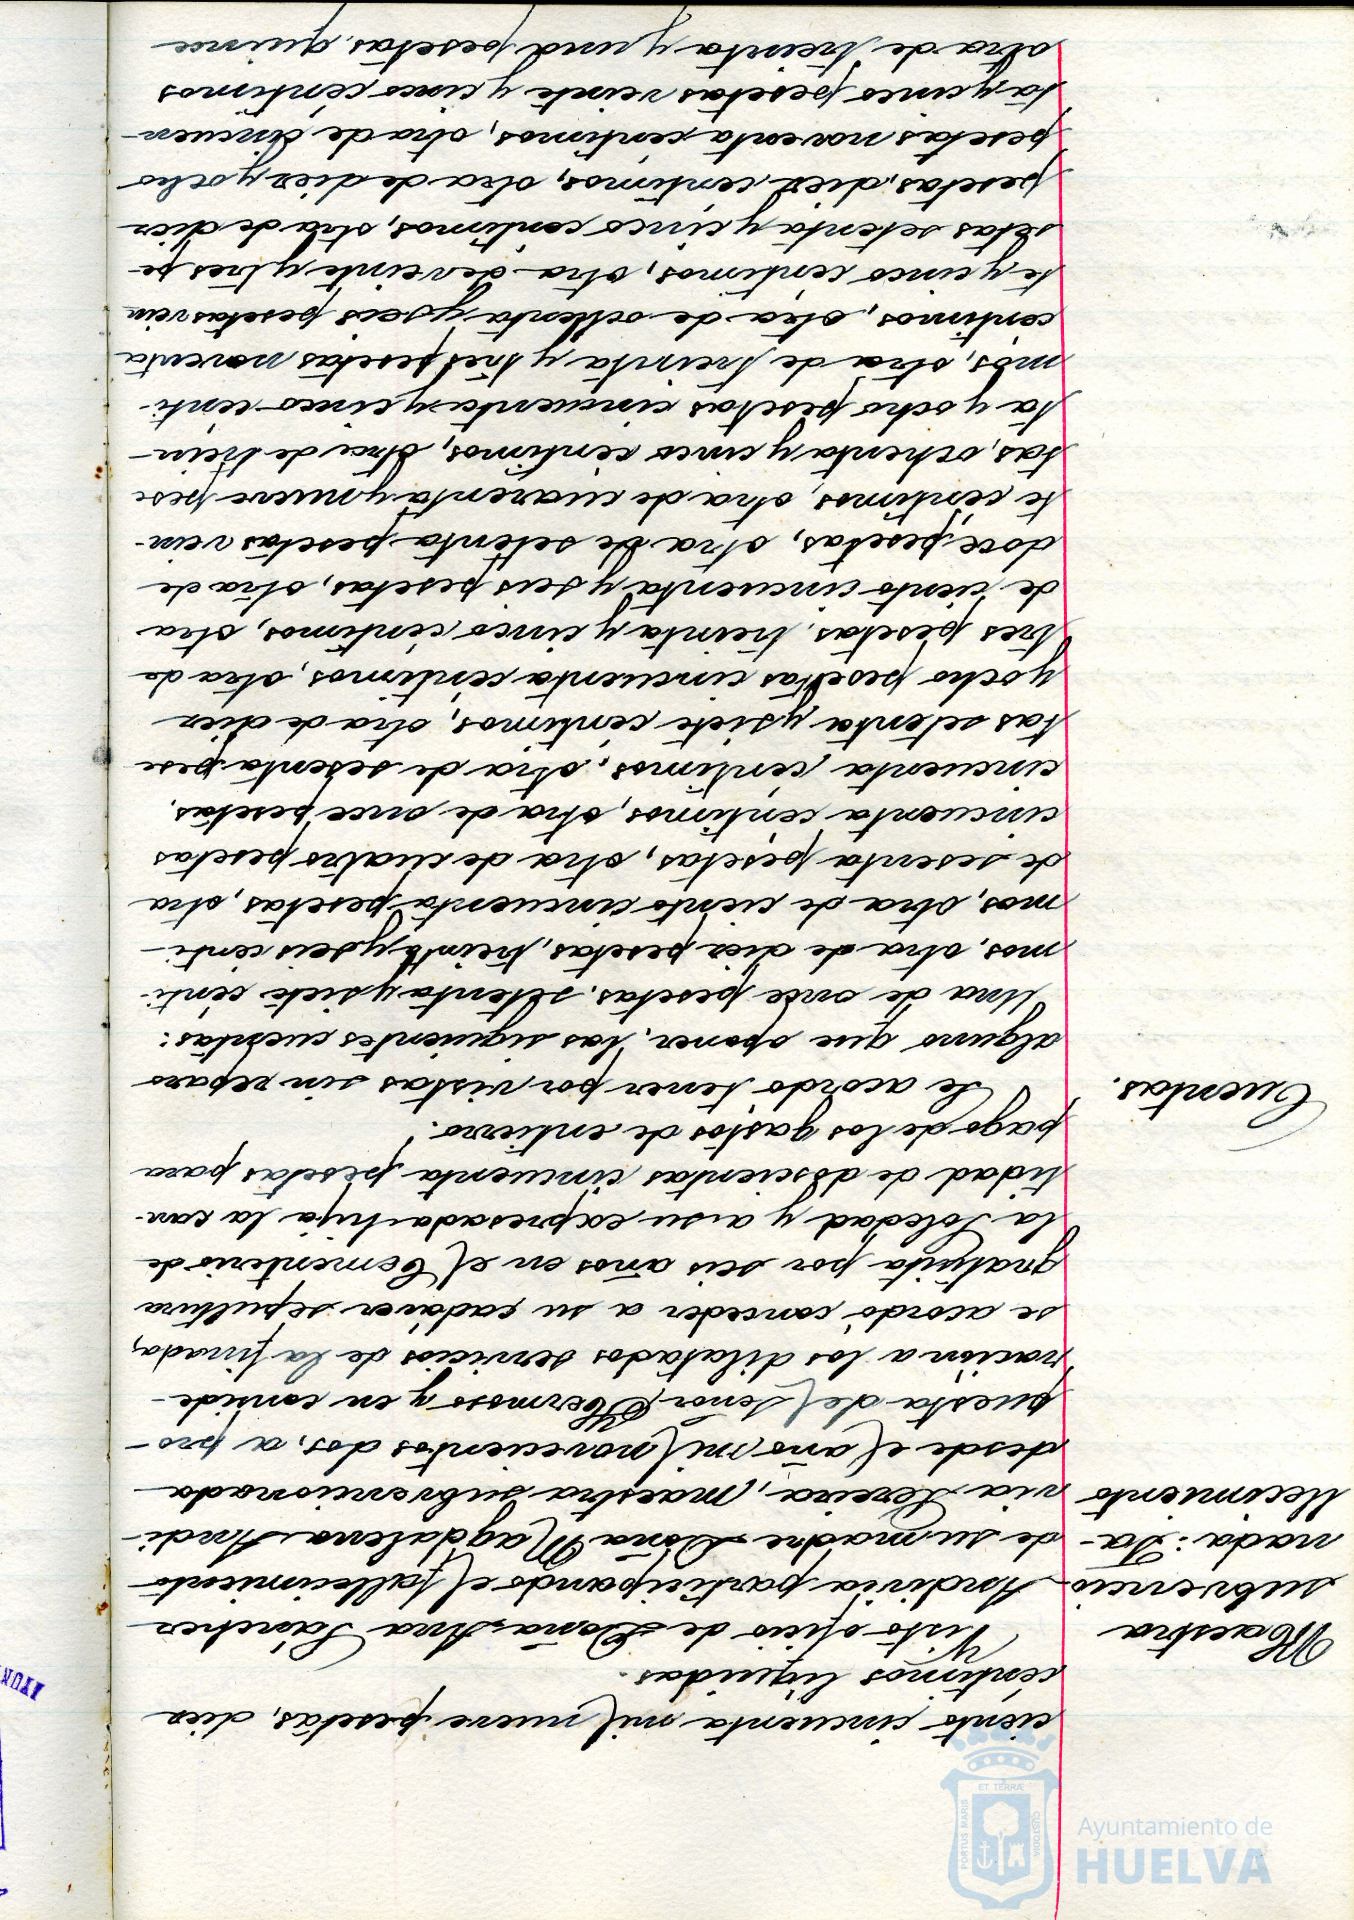 ciento cincuenta mil nueve pesetas, diez
céntimos líquidas.
Maestra
subvencio-
nada: Fa-
llecimiento
Visto oficio de Doña Ana Sánchez
Andivia participando el fallecimiento
de su madre Doña Magdalena Andi-
via Pereira, maestra subvencionada
desde el año mil novecientos dos, a pro-
puesta del Señor Hermoso y en conside-
ración a los dilatados servicios de la finada,
se acordó conceder a su cadáver sepultura
gratuita por seis años en el Cementerio de
la Soledad y a su expresada hija la can-
tidad de doscientas cincuenta pesetas para
pago de los gastos de entierro.
Cuentas.
Se acordó tener por vistas sin reparo
alguno que oponer, las siguientes cuentas:
Una de once pesetas, setenta y siete cénti-
mos, otra de diez pesetas, treinta y seis cénti-
mos, otra de ciento cincuenta pesetas, otra
de sesenta pesetas, otra de cuatro pesetas
cincuenta céntimos, otra de once pesetas,
cincuenta céntimos, otra de sesenta pese
tas setenta y siete céntimos, otra de diez
y ocho pesetas cincuenta céntimos, otra de
tres pesetas, treinta y cinco céntimos, otra
de ciento cincuenta y seis pesetas, otra de
doce pesetas, otra de setenta pesetas vein-
te céntimos, otra de cuarenta y nueve pese
tas, ochenta y cinco céntimos, otra de trein-
ta y ocho pesetas cincuenta y cinco cénti-
mos, otra de treinta y tres pesetas noventa
centimos, otra de ochenta y seis pesetas vein
te y cinco centimos, otra de veinte y tres pe-
setas setenta y cinco centimos, otra de diez
pesetas, diez centimos, otra de diez y ocho
pesetas noventa centimos, otra de cincuen-
ta y cinco pesetas veinte y cinco centimos
otra de treinta y una pesetas, quince
AYUN
PORTUS MARIS
ET TERRÆ
CUSTODIA
Ayuntamiento de
HUELVA